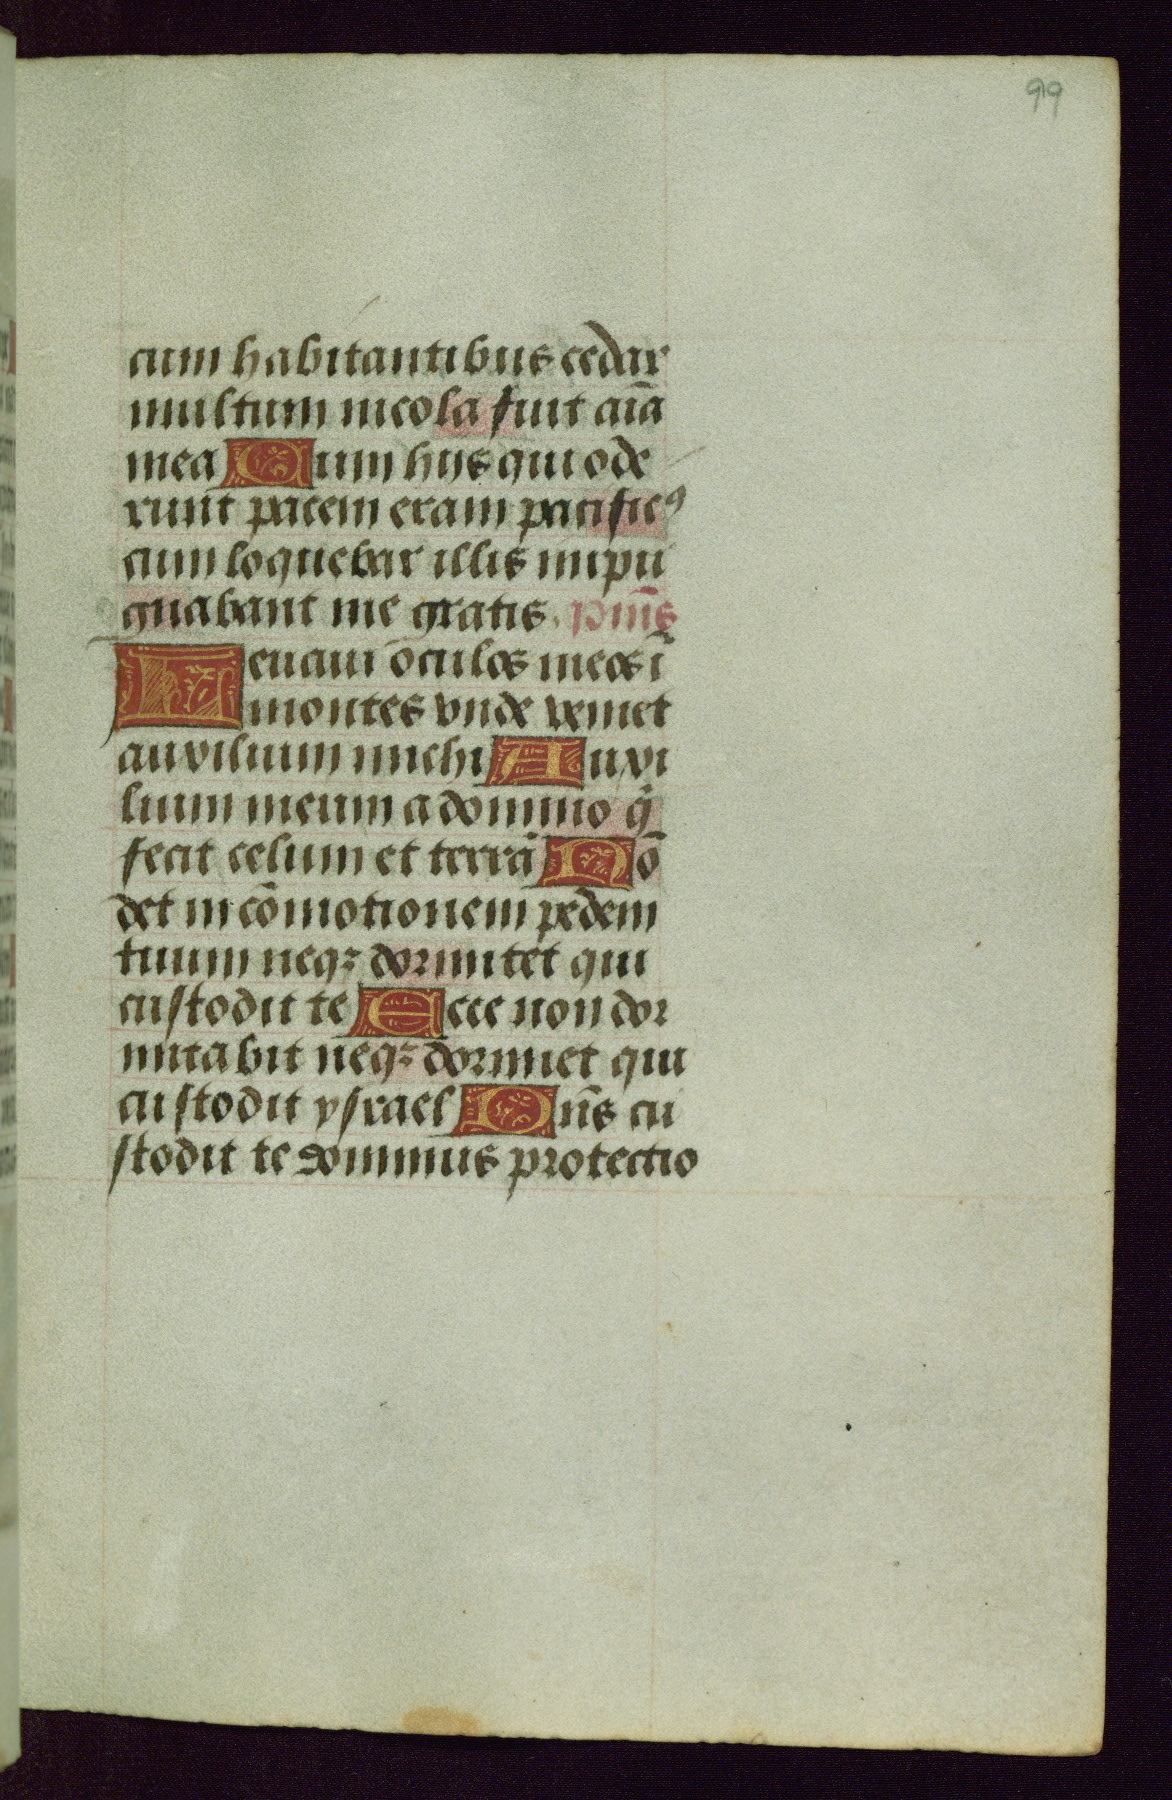 99
cum habitantibus cedar
multum incola fuit aīa
mea Cum hijs qui ode
runt pacem eram pacificꝰ
cum loquebar illis impu
gnabant me gratis. p̄m̄s
Leuaui oculos meos ī
montes vnde veniet
auxilium michi Auxi
lium meum a domino q̄
fecit celum et terrā Nō
det in cōmotionem pedem
tuum neqꝫ dormitet qui
custodit te Ecce non dor
mitabit neqꝫ dormiet qui
custodit ysrael Dn̄s cu
stodit te dominus protectio